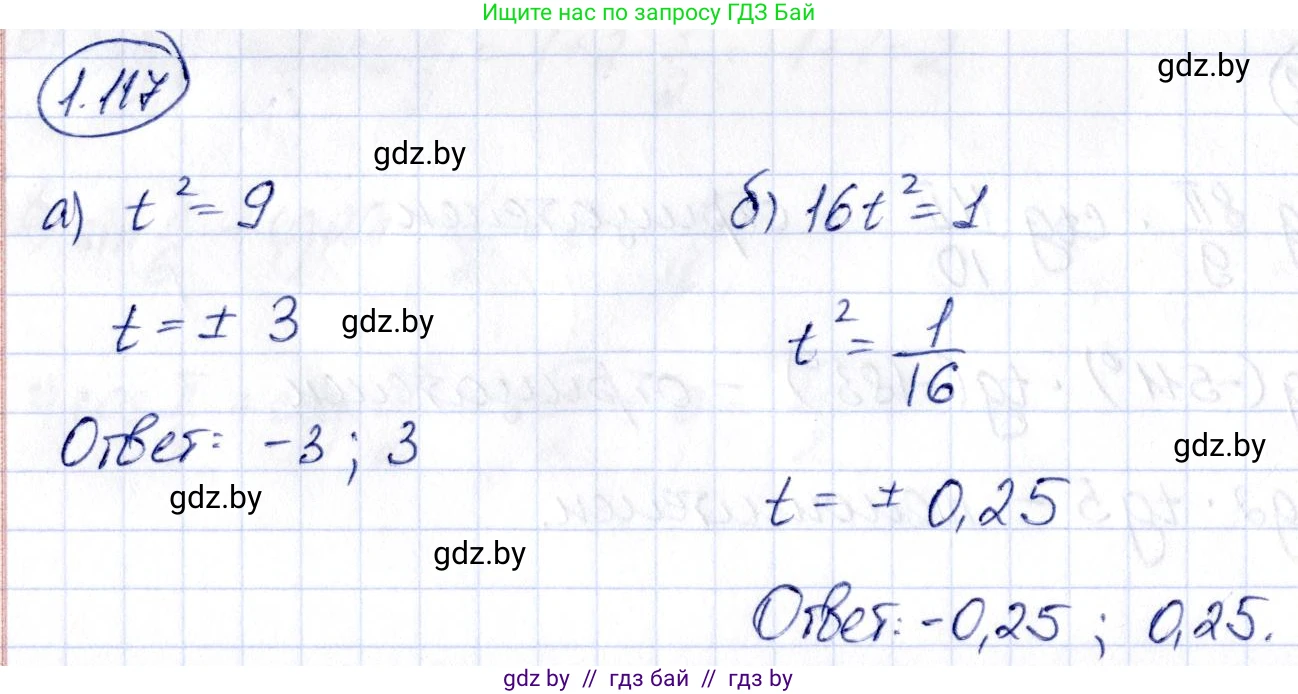 Ищите нас по запросу ГДЗ Бай
1.117
gdz.by
gdz.by
а) t² = 9
б) 16t² = 1
t = ± 3
gdz.by
t² = 1/16
Ответ: -3 ; 3
gdz.by
gdz.by
t = ± 0,25
gdz.by
Ответ: -0,25 ; 0,25.
gdz.by // гдз бай // гдз by